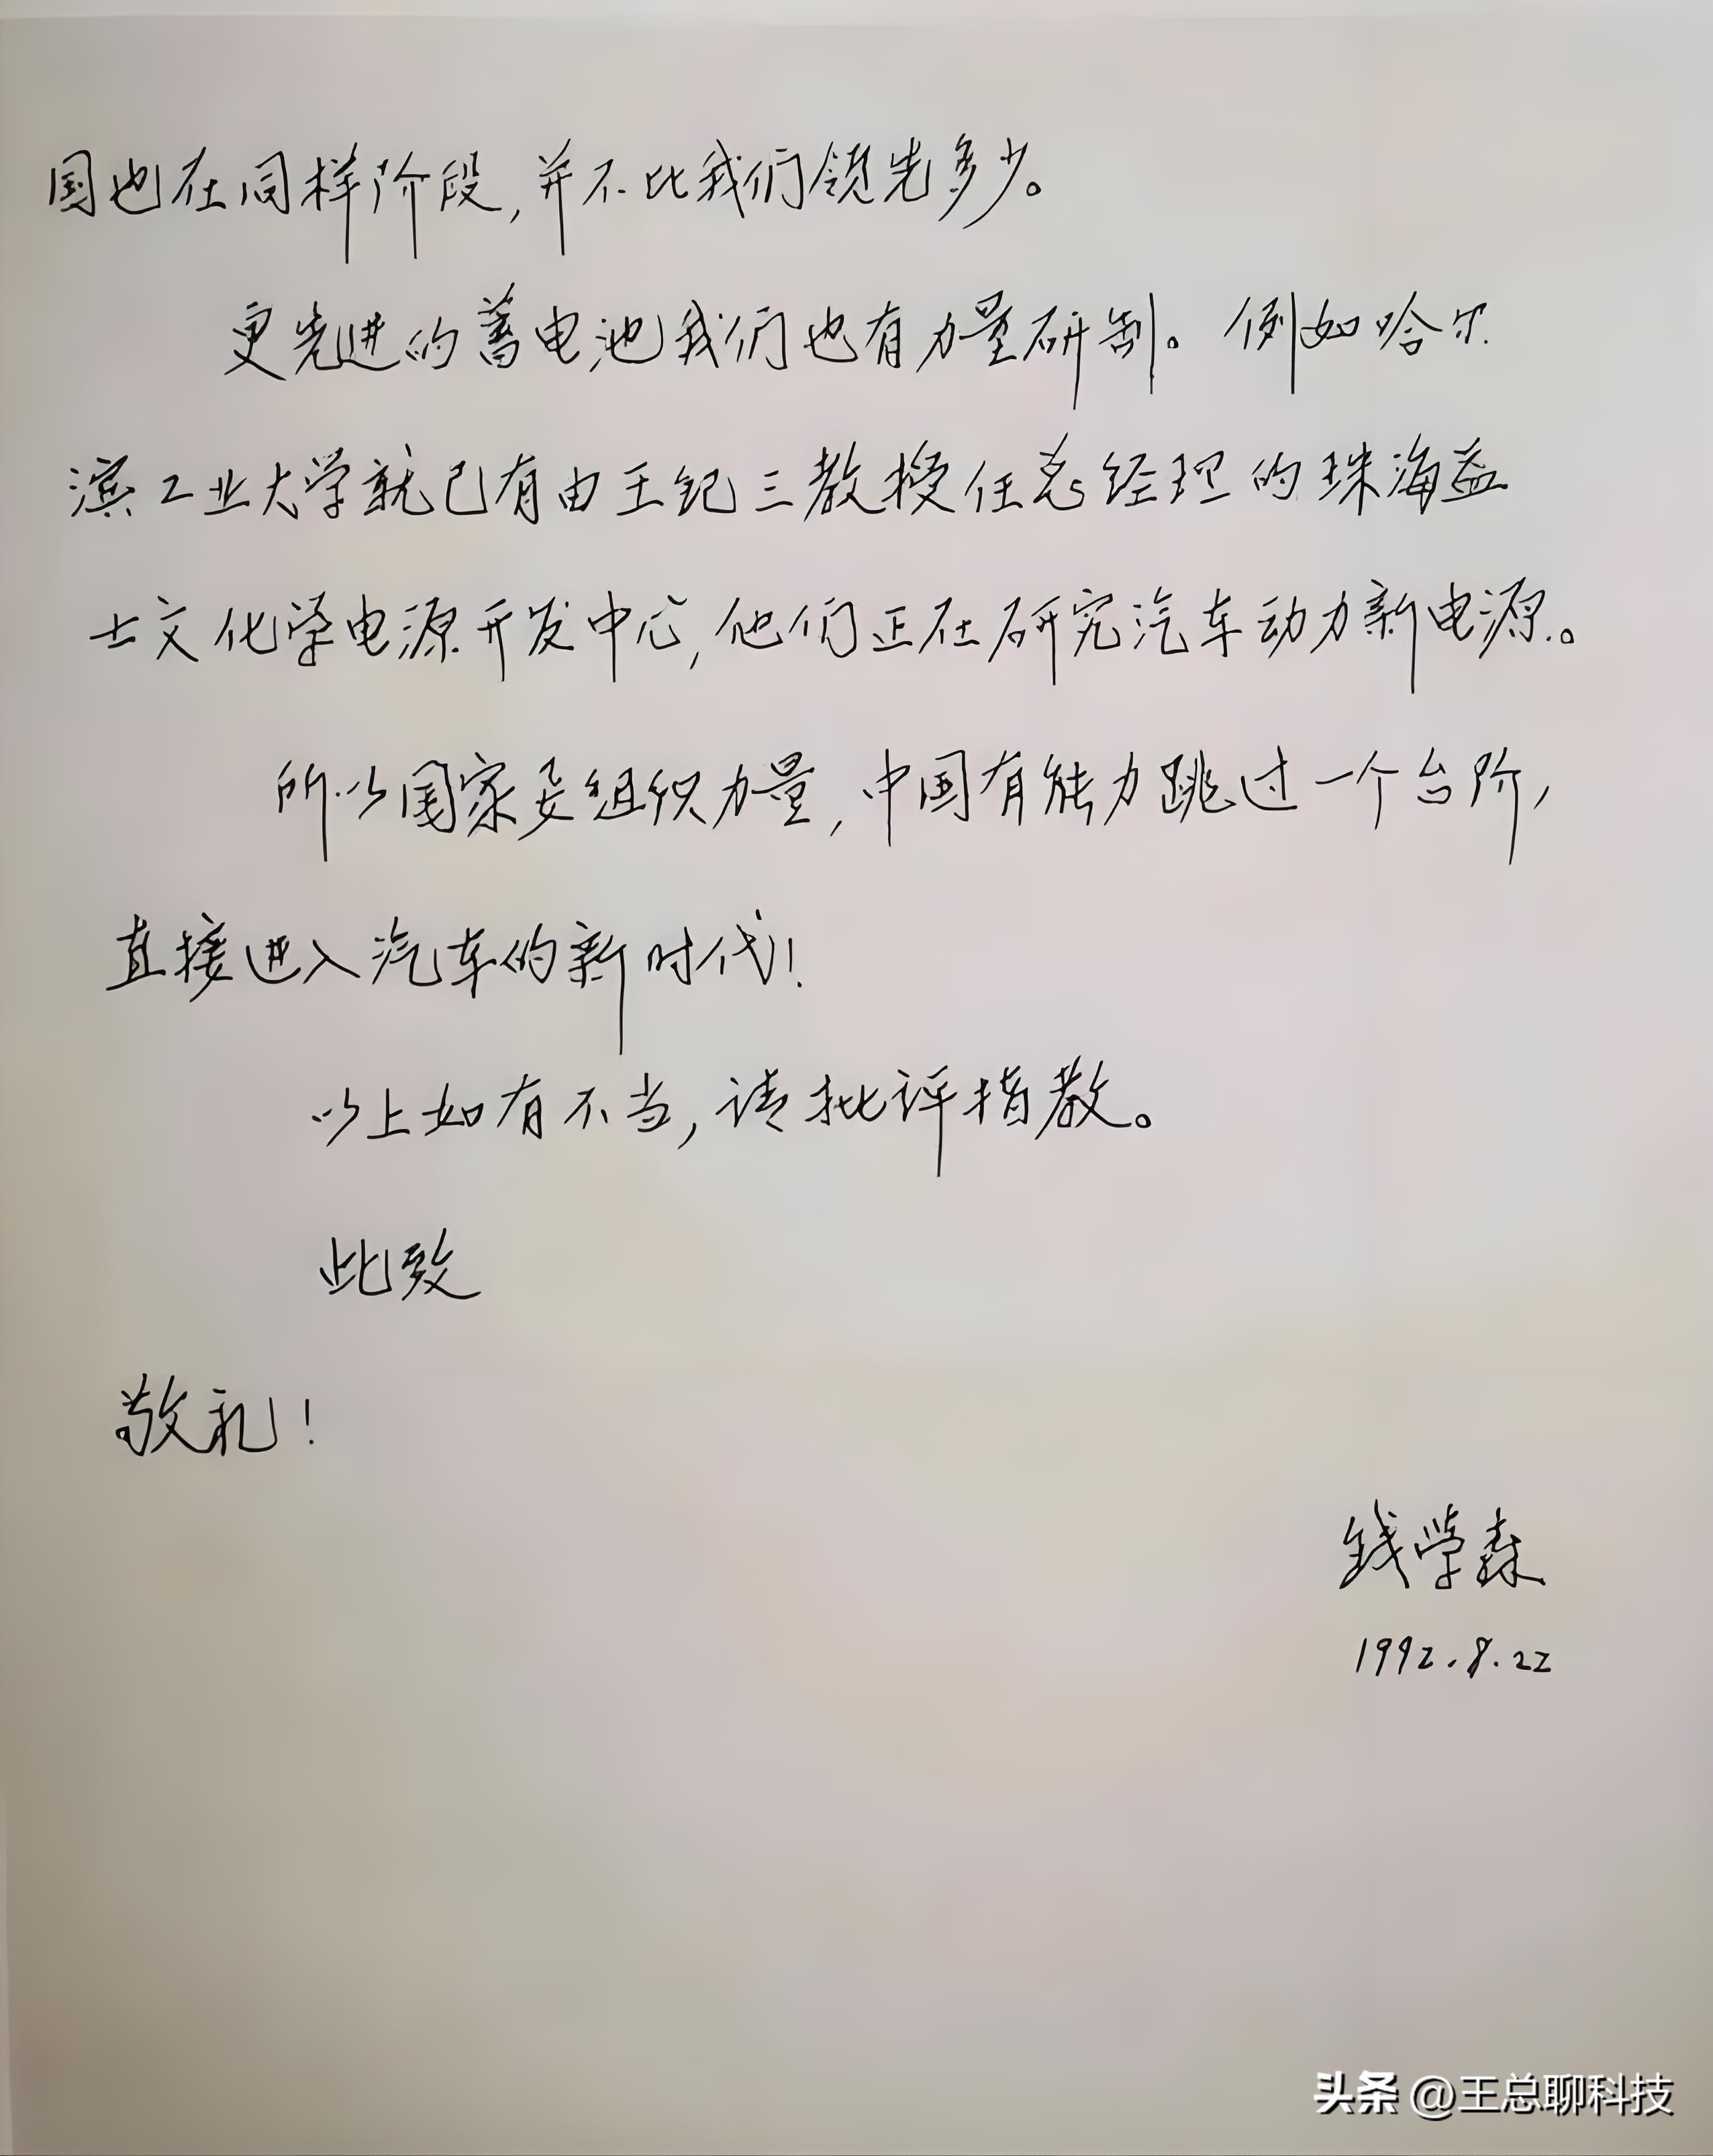 国也在同样阶段，并不比我们领先多少。
更先进的蓄电池我们也有力量研制。例如哈尔
滨工业大学就已有由王纪三教授任总经理的珠海益
士文化学电源开发中心，他们正在研究汽车动力新电源。
所以国家要组织力量，中国有能力跳过一个台阶，
直接进入汽车的新时代！
以上如有不当，请批评指教。
此致
敬礼！
钱学森
1992.8.22
头条 @王总聊科技